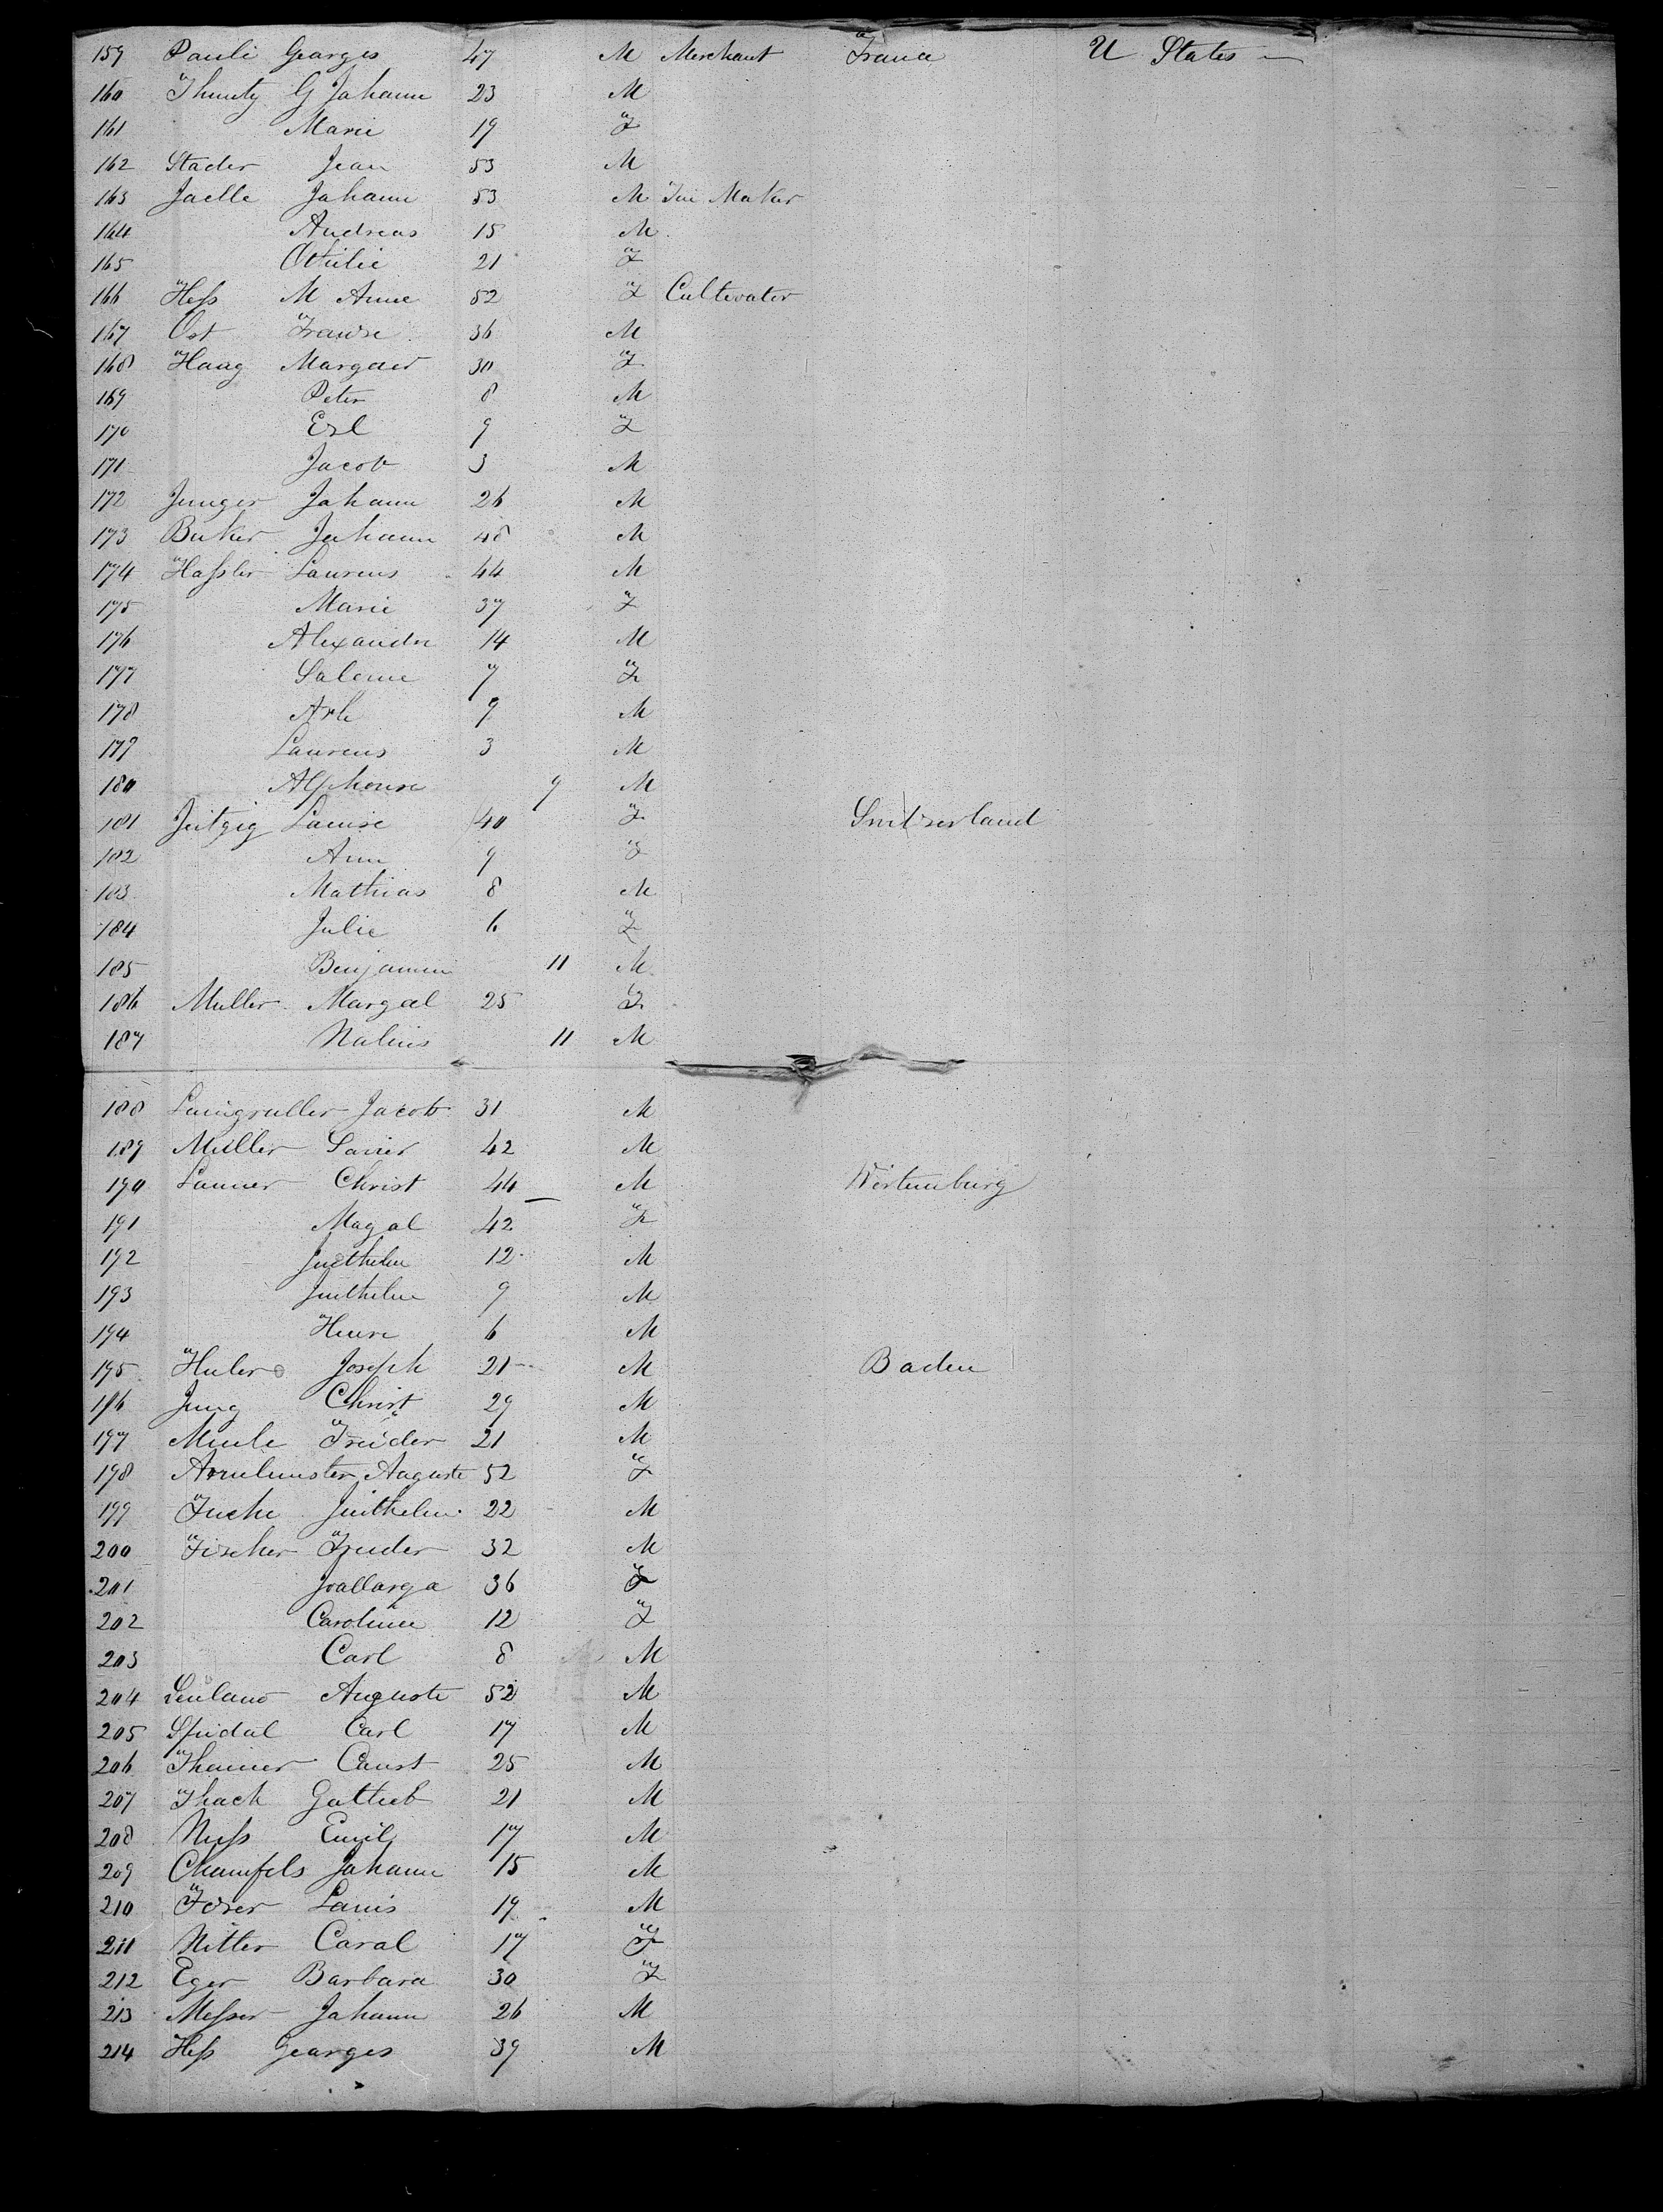 159 Pauli Georges 47 M Merchant France U States —
160 Thunty G Johann 23 M
161 Marie 19 F
162 Stader Jean 53 M
163 Jaelle Johann 53 M Tin Maker
164 Andreas 15 M
165 Othilie 21 F
166 Heß M Anne 52 F Cultivator
167 Ost 36 M
168 Haag Margaer 30 F
169 Peter 8 M
170 Esl 9 F
171 Jacob 3 M
172 Junger Johann 26 M
173 Buker Johann 48 M
174 Haßler Laurens 44 M
175 Marie 37 F
176 Alexandre 14 M
177 Salome 7 F
178 9 M
179 Laurens 3 M
180 Alphonse 9 M
181 Jeitgig Louise 40 F Switzerland
182 Ann 9 F
183 Mathias 8 M
184 Julie 6 F
185 Benjamin 11 M
186 Muller Margael 25 F
187 11 M
188 Jacob 31 M
189 Muller 42 M
190 Lanner Christ 44 M Wirtemburg
191 Magal 42 F
192 12 M
193 9 M
194 6 M
195 Huber Joseph 21 M Baden
196 Jung Christ 29 M
197 Freider 21 M
198 Auguste 52 F
199 22 M
200 Fischer Freider 32 M
201 36 F
202 Caroline 12 F
203 Carl 8 M
204 Auguste 52 M
205 Spidal Carl 17 M
206 Thainer 25 M
207 Thach Gottlieb 21 M
208 Nuß Emil 17 M
209 Johann 15 M
210 Louis 19 M
211 Nitter Caral 17 F
212 Eger Barbara 30 F
213 Meßer Johann 26 M
214 Heß Georges 39 M